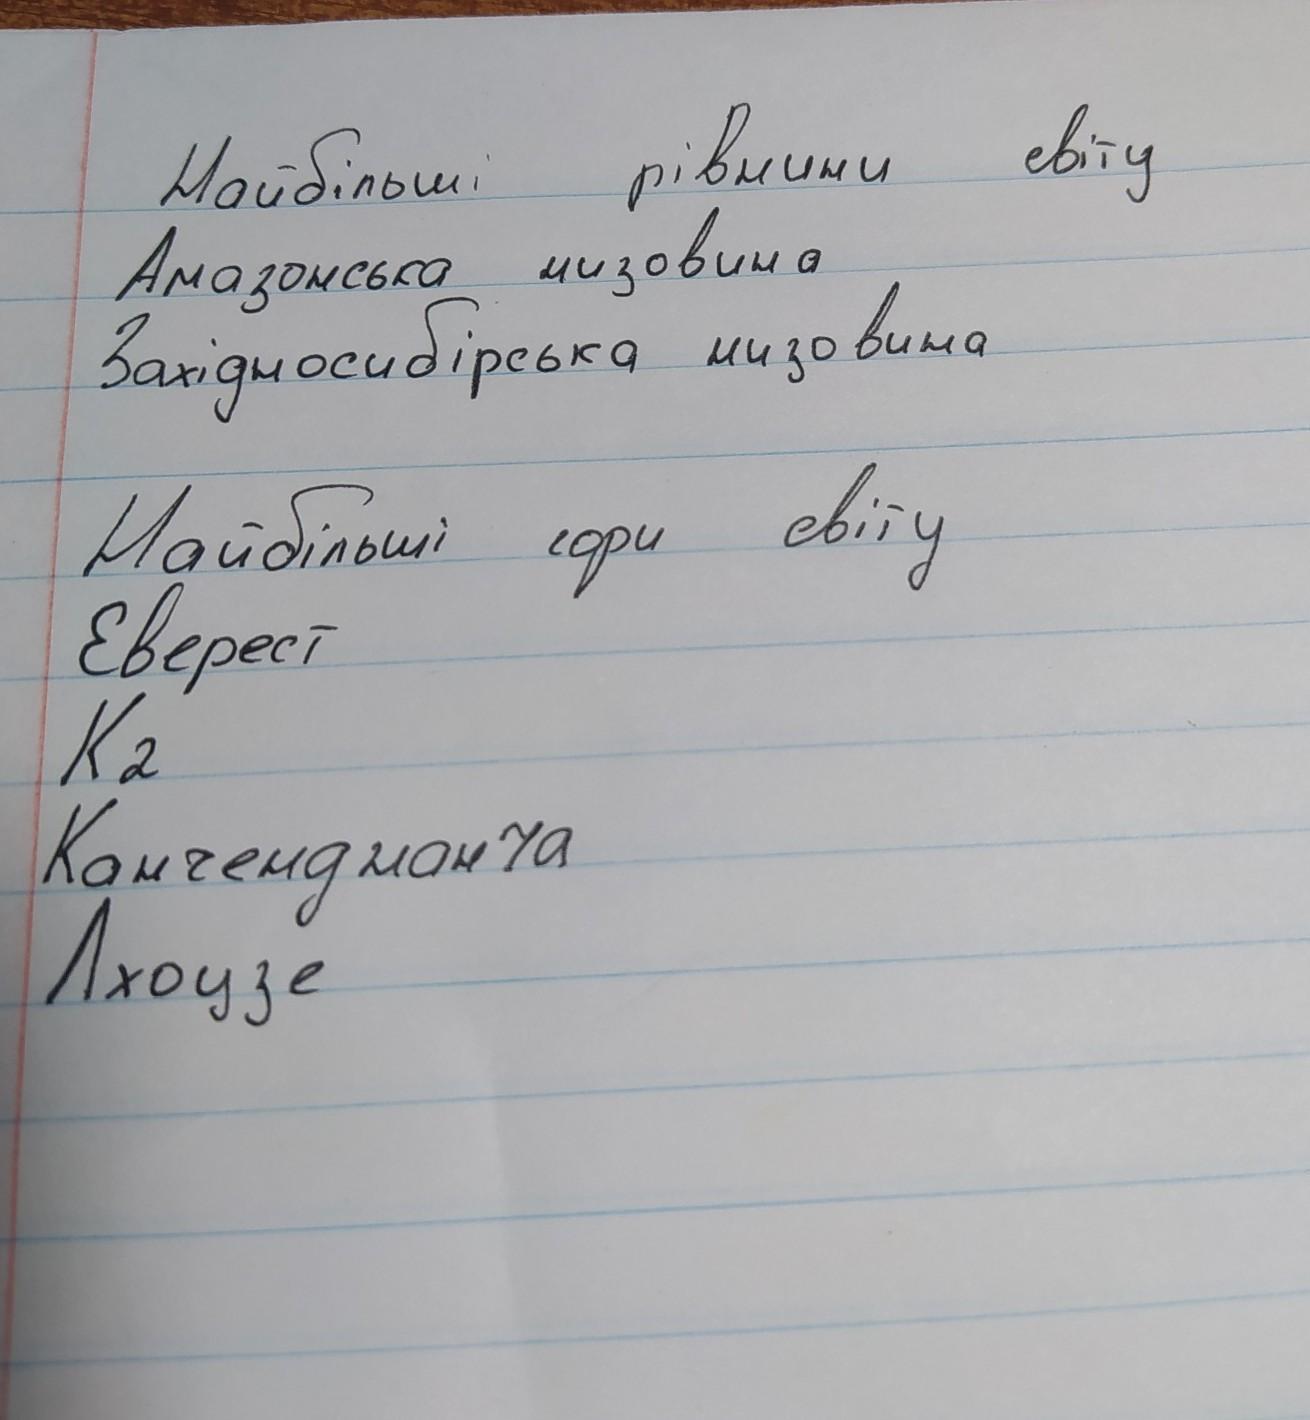 Найбільші рівнини світу
Амазонська низовина
Західносибірська низовина
Найбільші гори світу
Еверест
К2
Канчендманча
Лхоцзе